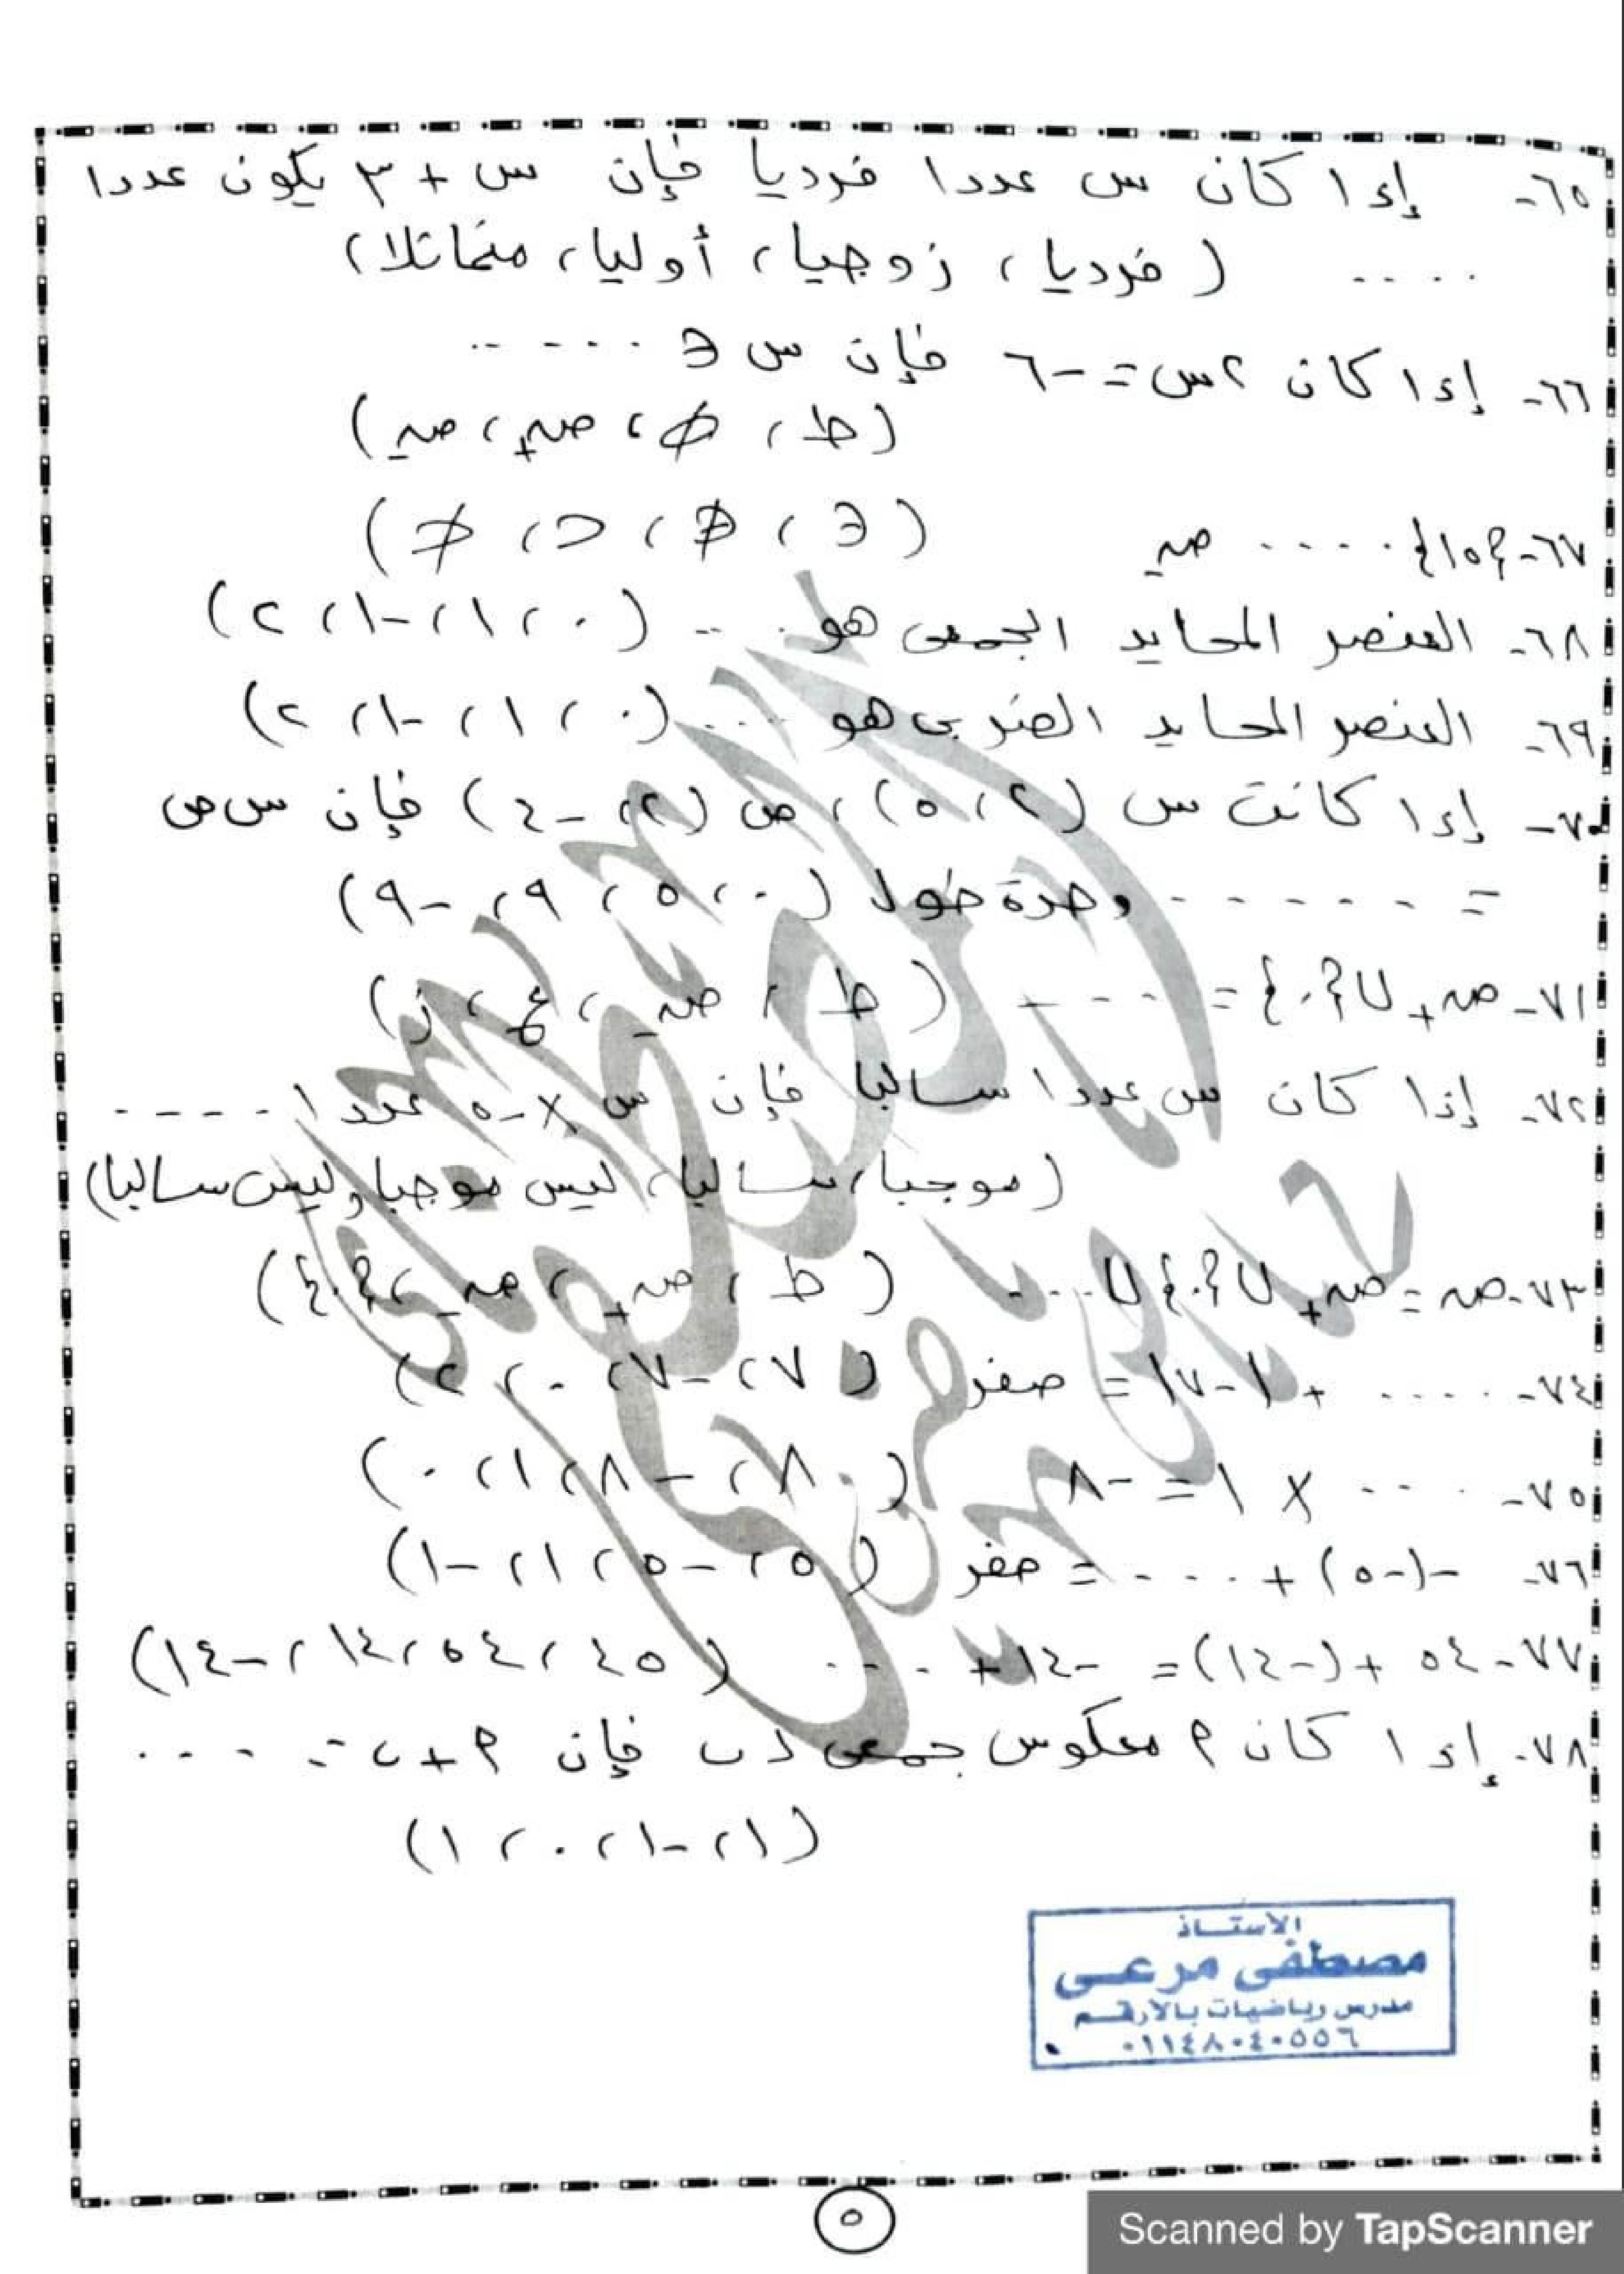 ٦٥- إذا كان س عددا فرديا فإن س + ٣ يكون عددا
.... ( فرديا ، زوجيا ، أوليا ، متماثلا )
٦٦- إذا كان ٢س = -٦ فإن س ∈ .....
( ط ، ∅ ، صـ+ ، صـ- )
٦٧- {١٥} .... صـ ( ∈ ، ∉ ، ⊂ ، ⊄ )
٦٨- العنصر المحايد الجمعى هو ... ( ٠ ، ١ ، -١ ، ٢ )
٦٩- العنصر المحايد الضربى هو .... ( ٠ ، ١ ، -١ ، ٢ )
٧٠- إذا كانت س (٢ ، ٥) ، ص (٢ ، -٤) فإن س ص
= ...... وحدة طول ( ٠ ، ٥ ، ٩ ، -٩ )
٧١- صـ+ ∪ {٠} = .... ( ط ، صـ- ، ع ، ز )
٧٢- إذا كان س عددا سالبا فإن س × -٥ عددا ....
( موجبا ، سالبا ، ليس موجبا ، ليس سالبا )
٧٣- صـ = صـ+ ∪ {٠} ∪ .... ( ط ، صـ+ ، صـ- ، {٠} )
٧٤- .... + |-٧| = صفر ( ٧ ، -٧ ، ٠ ، ٢ )
٧٥- .... × ١ = -٨ ( ٨ ، -٨ ، ١ ، ٠ )
٧٦- -(-٥) + .... = صفر ( ٥ ، -٥ ، ١ ، -١ )
٧٧- ٥٤ + (-١٤) = -١٤ + .... ( ٤٥ ، ٥٤ ، ١٤ ، -١٤ )
٧٨- إذا كان ٢ معكوس جمعى لـ ب فإن ٢ + ب = ....
( ١ ، -١ ، ٠ ، ١ )
الأستاذ
مصطفى مرعى
مدرس رياضيات بالارقم
٠١١٤٨٠٤٠٥٥٦
٥
Scanned by TapScanner